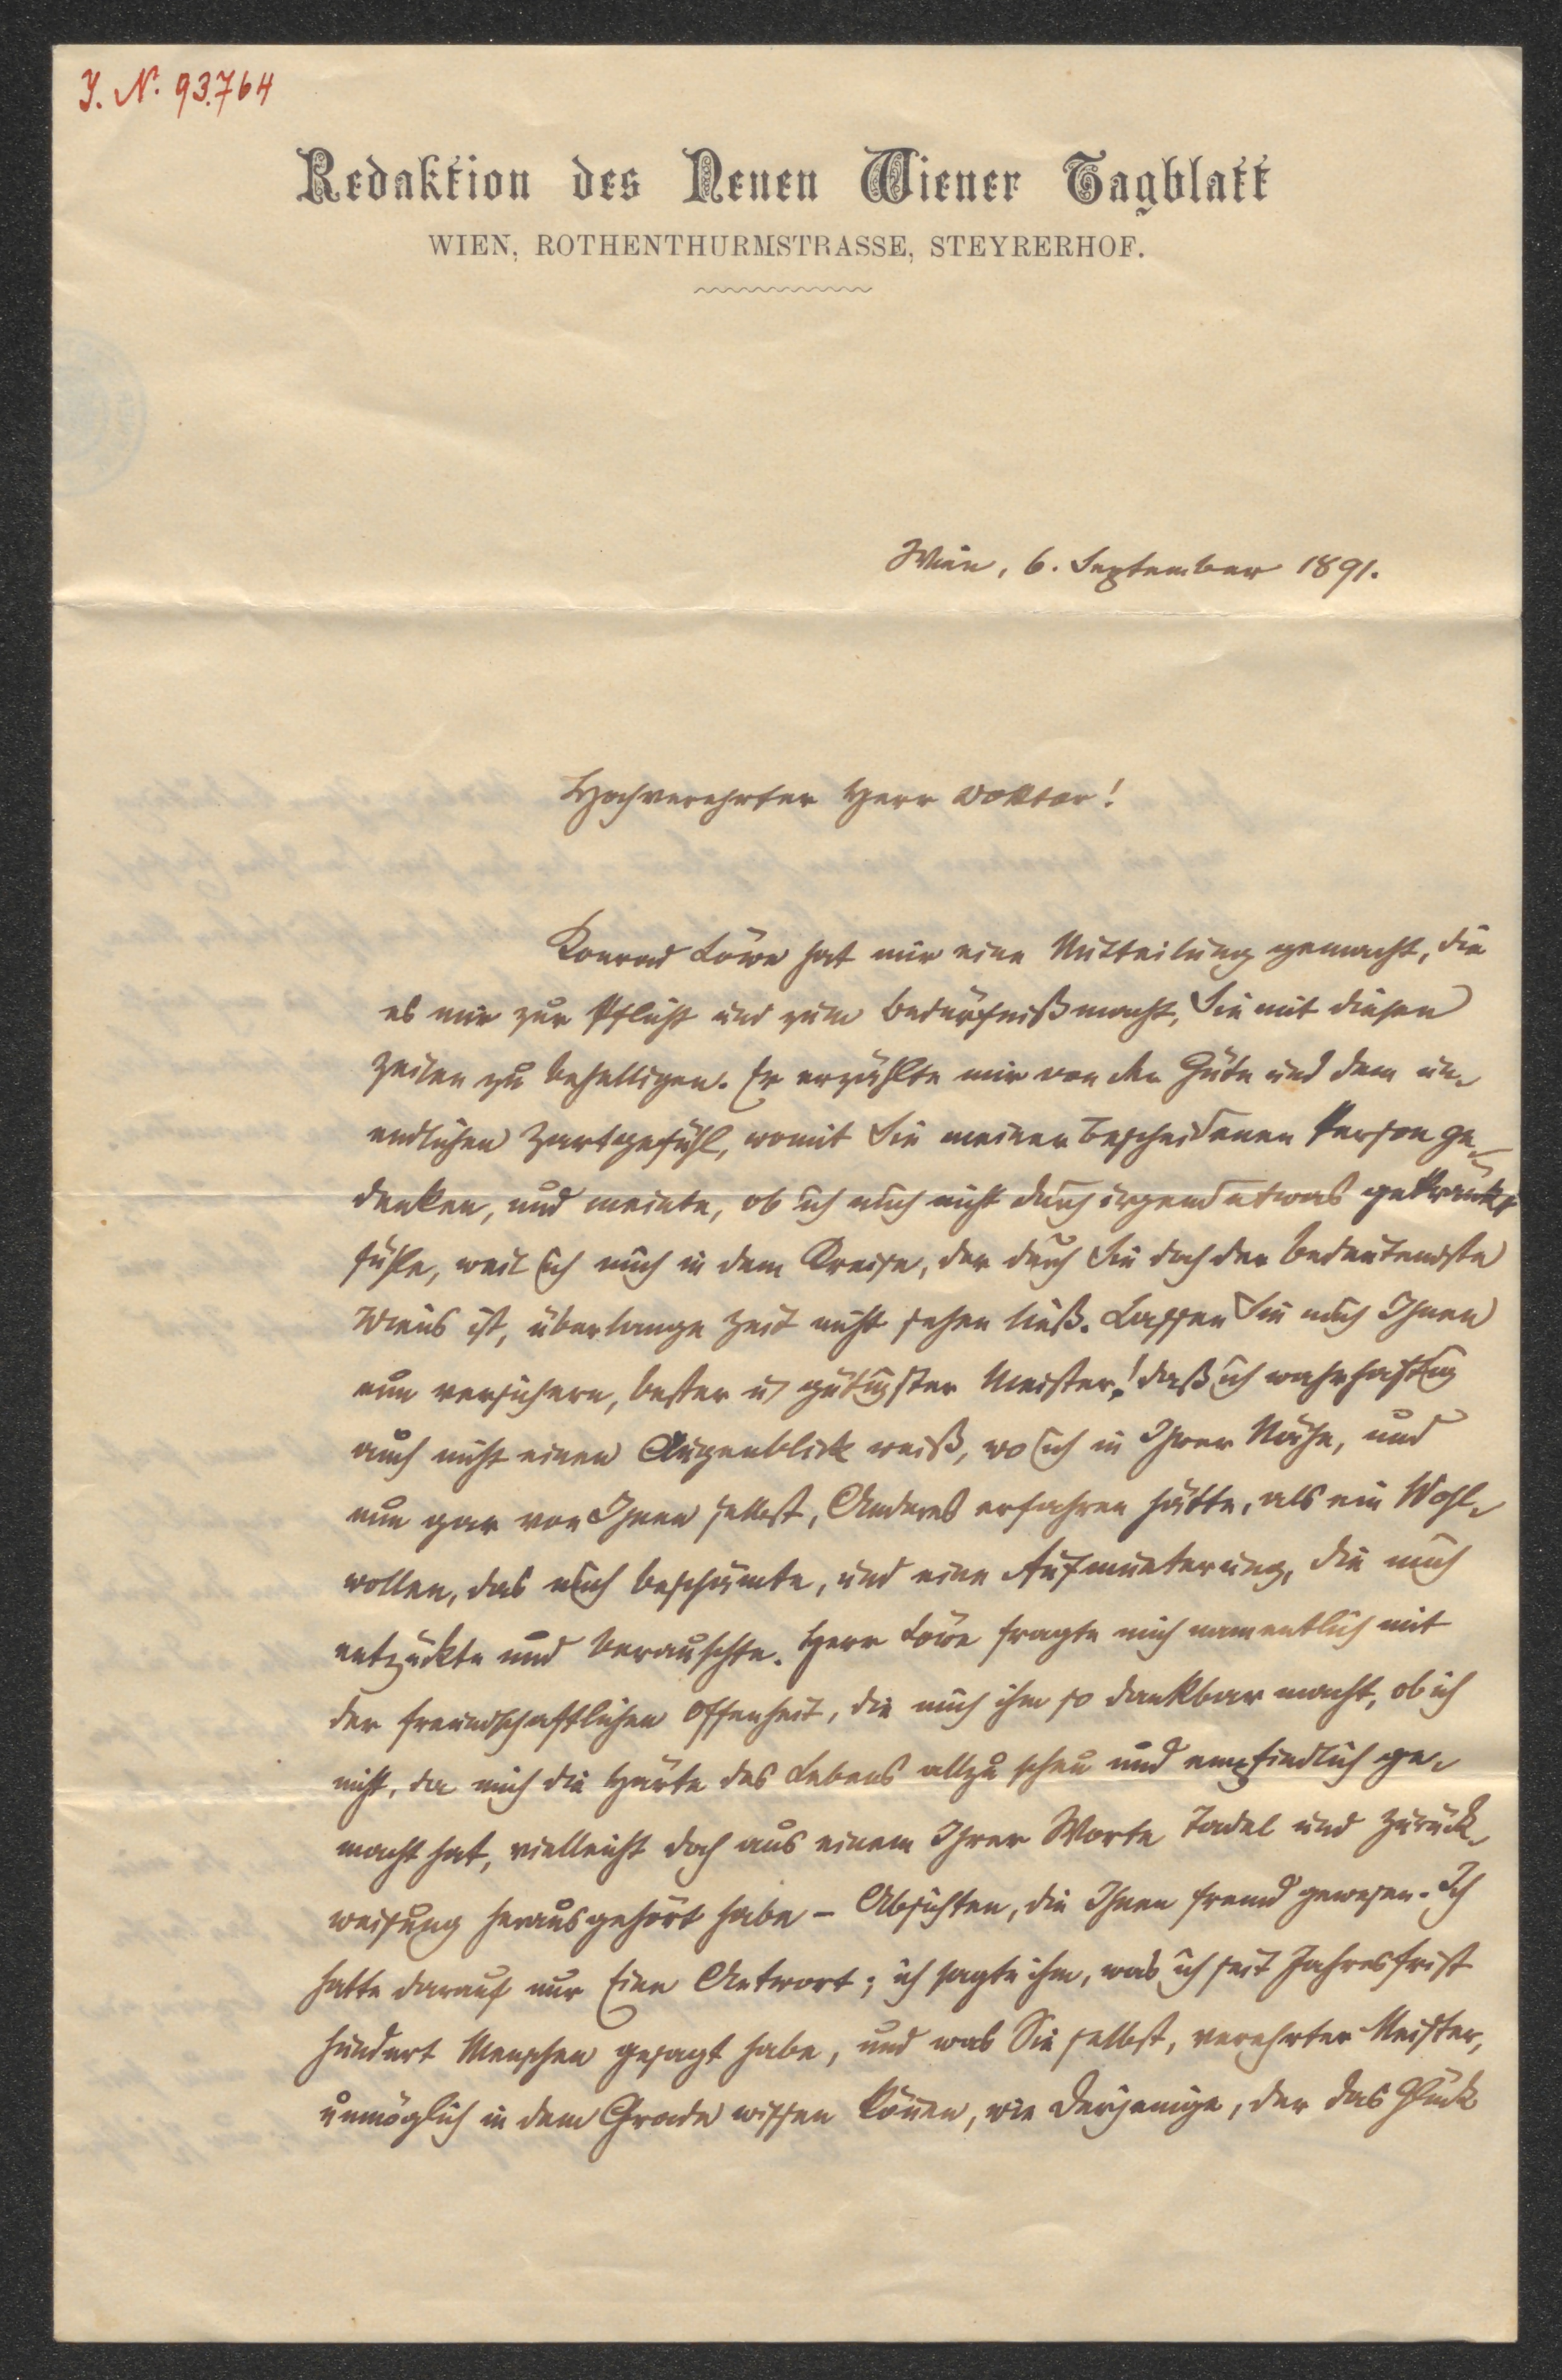 J. N. 93.764
Redaktion des Neuen Wiener Tagblatt
WIEN, ROTHENTHURMSTRASSE, STEYRERHOF.
Wien, 6. September 1891.
Hochverehrter Herr Doktor!
Konrad Löwe hat mir eine Mitteilung gemacht, die
es mir zur Pflicht und zum Bedürfniß macht, Sie mit diesen
Zeilen zu behelligen. Er erzählte mir von der Güte und dem un-
endlichen Zartgefühl, womit Sie meiner bescheidenen Person ge-
denken, und meinte, ob ich mich nicht durch irgend etwas gekränkt
fühle, weil ich mich in dem Kreise, der durch Sie doch der bedeutendste
Wiens ist, überlange Zeit nicht sehen ließ. Lassen Sie mich Ihnen
nun versichern, bester u gütigster Meister! daß ich wahrhaftig
auch nicht einen Augenblick weiß, wo ich in Ihrer Nähe, und
nun gar von Ihnen selbst, Anderes erfahren hätte, als ein Wohl-
wollen, das mich beschämte, und eine Aufmunterung, die mich
entzückte und berauschte. Herr Löwe fragte mich namentlich mit
der freundschaftlichen Offenheit, die mich ihm so dankbar macht, ob ich
nicht, da mich die Härte des Lebens allzu scheu und empfindlich ge-
macht hat, vielleicht doch aus einem Ihrer Worte Tadel und Zurück-
weisung herausgehört habe – Absichten, die Ihnen fremd gewesen. Ich
hatte darauf nur Eine Antwort; ich sagte ihm, was ich seit Jahresfrist
hundert Menschen gesagt habe, und was Sie selbst, verehrter Meister,
unmöglich in dem Grade wissen können, wie derjenige, der das Glück